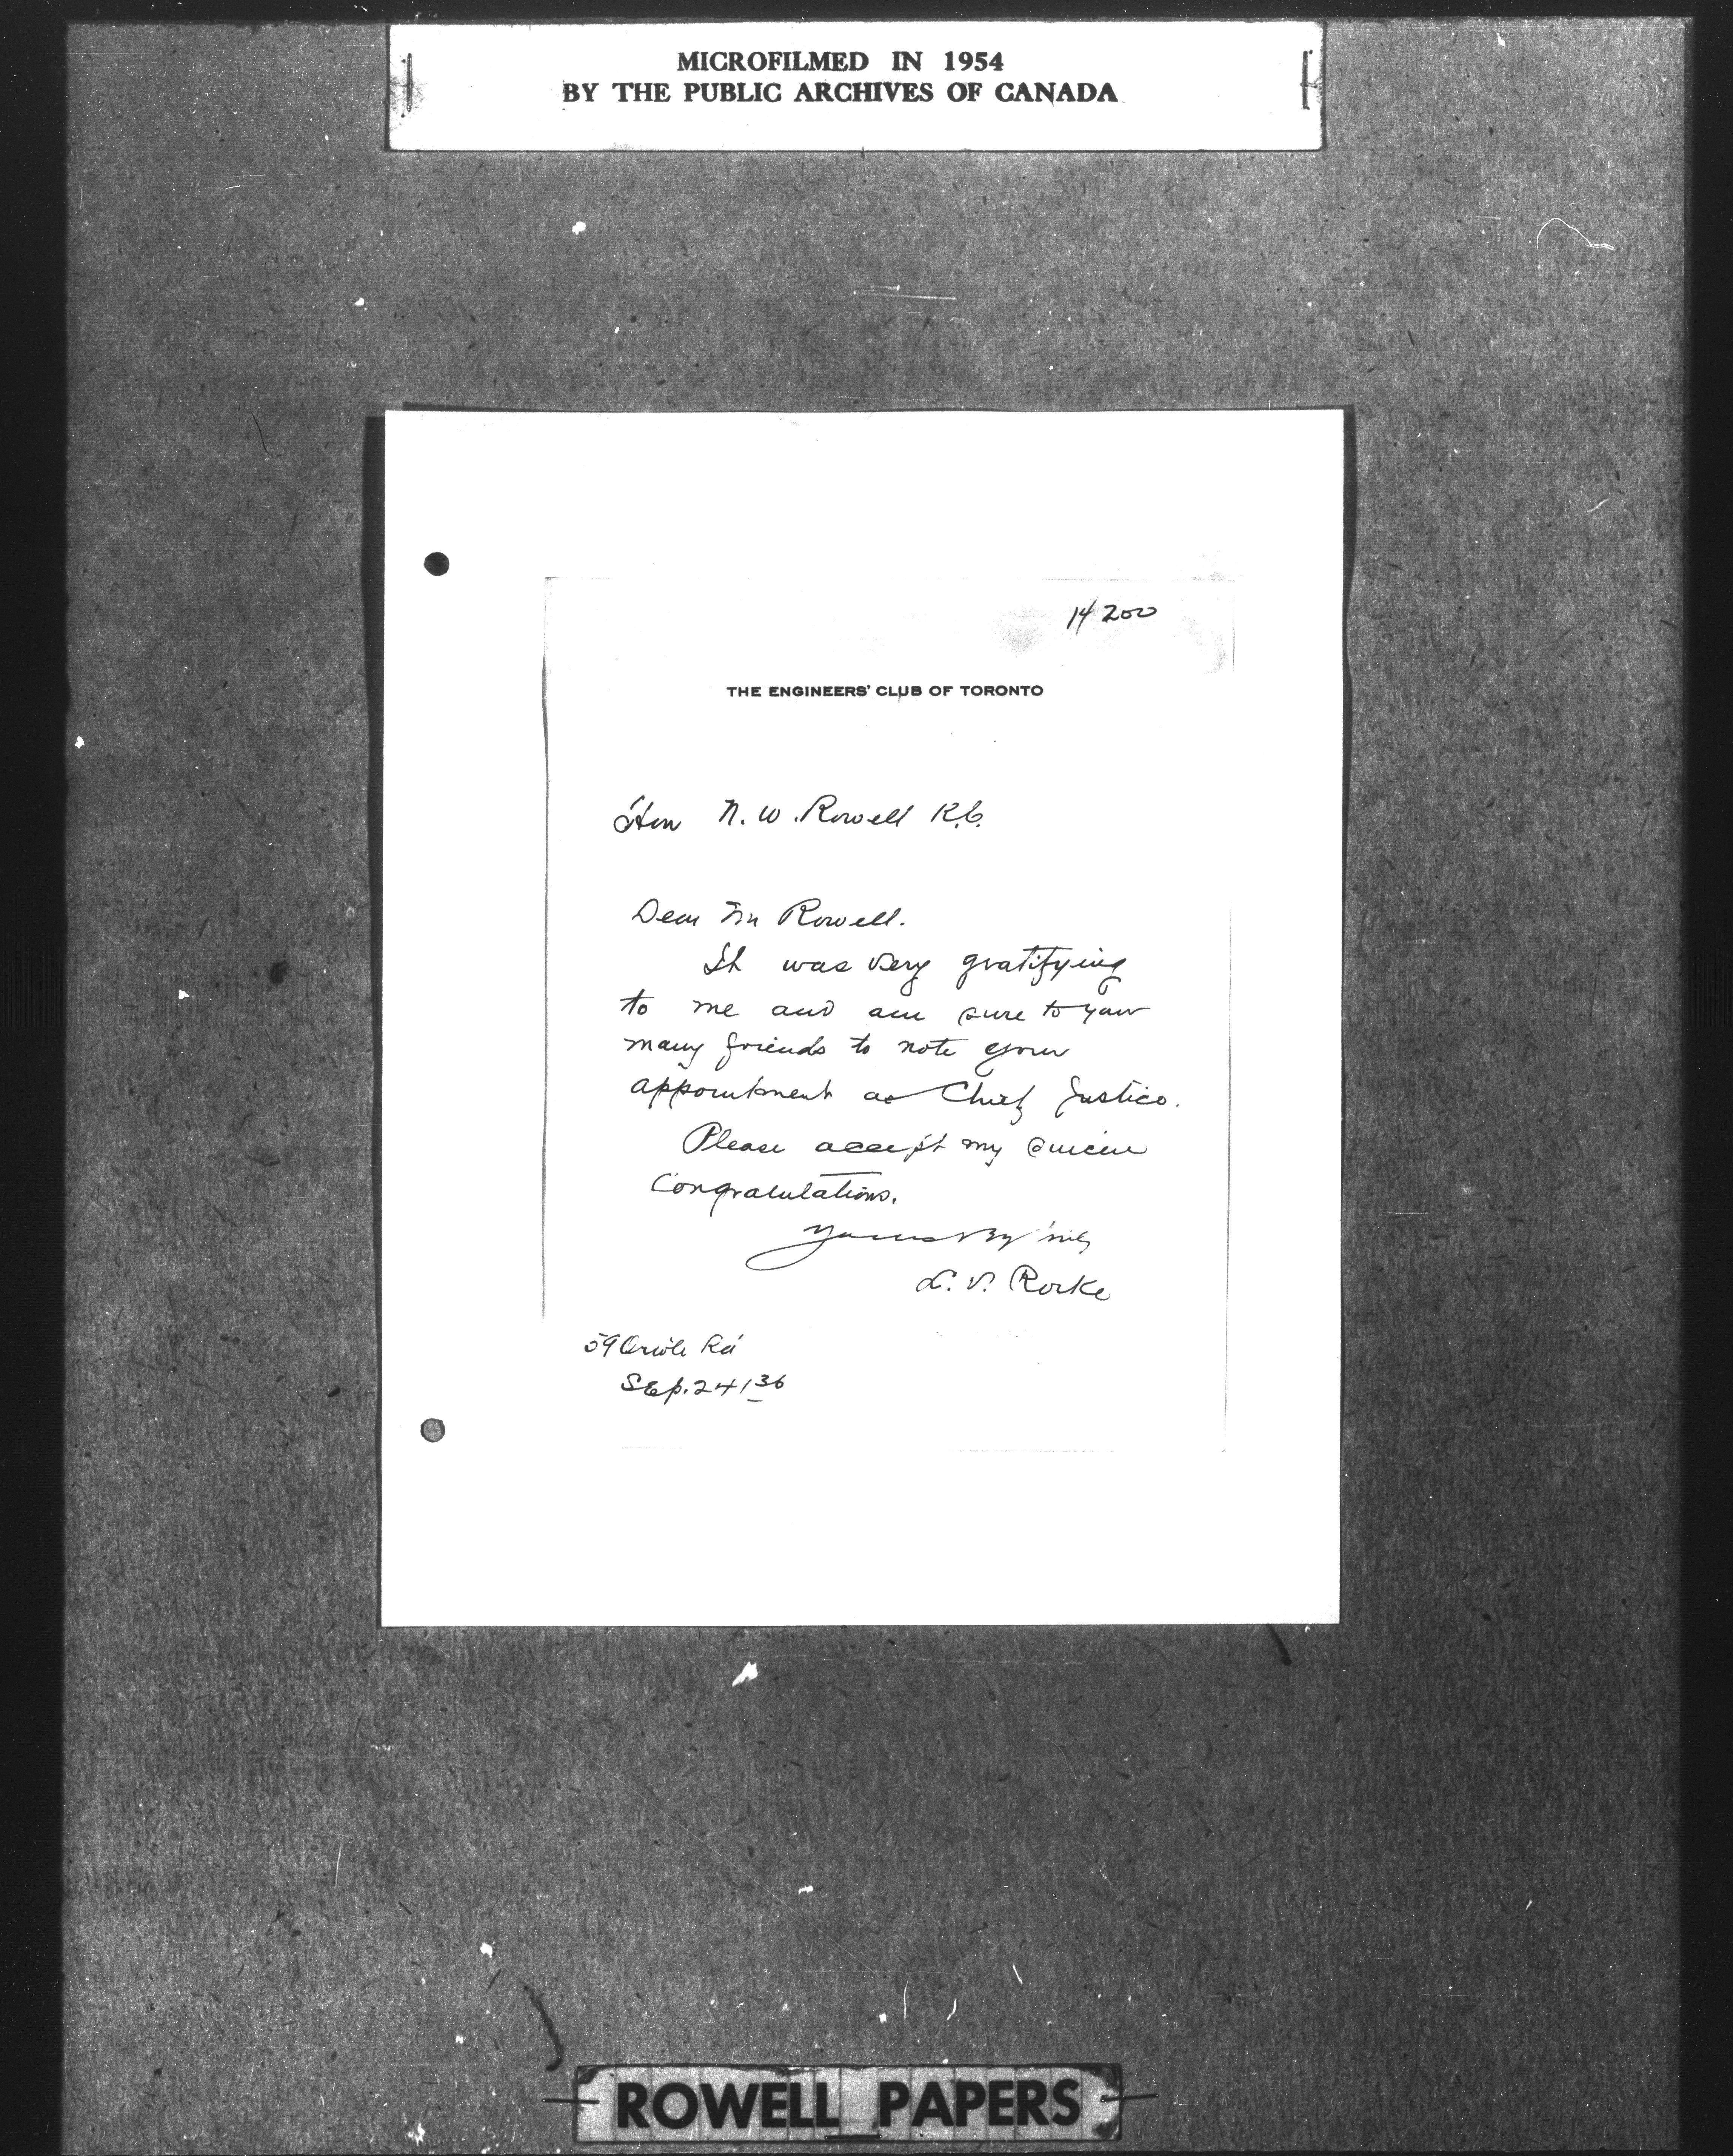 MICROFILMED IN 1954
BY THE PUBLIC ARCHIVES OF CANADA
14200
THE ENGINEERS' CLUB OF TORONTO
Hon N. W. Rowell K.C.
Dear Mr Rowell.
It was very gratifying
to me and am sure to your
many friends to note your
appointment as Chief Justice.
Please accept my sincere
Congratulations.
Yours
L. V. Rorke
59 Oriole Rd
Sep. 24/36
ROWELL PAPERS